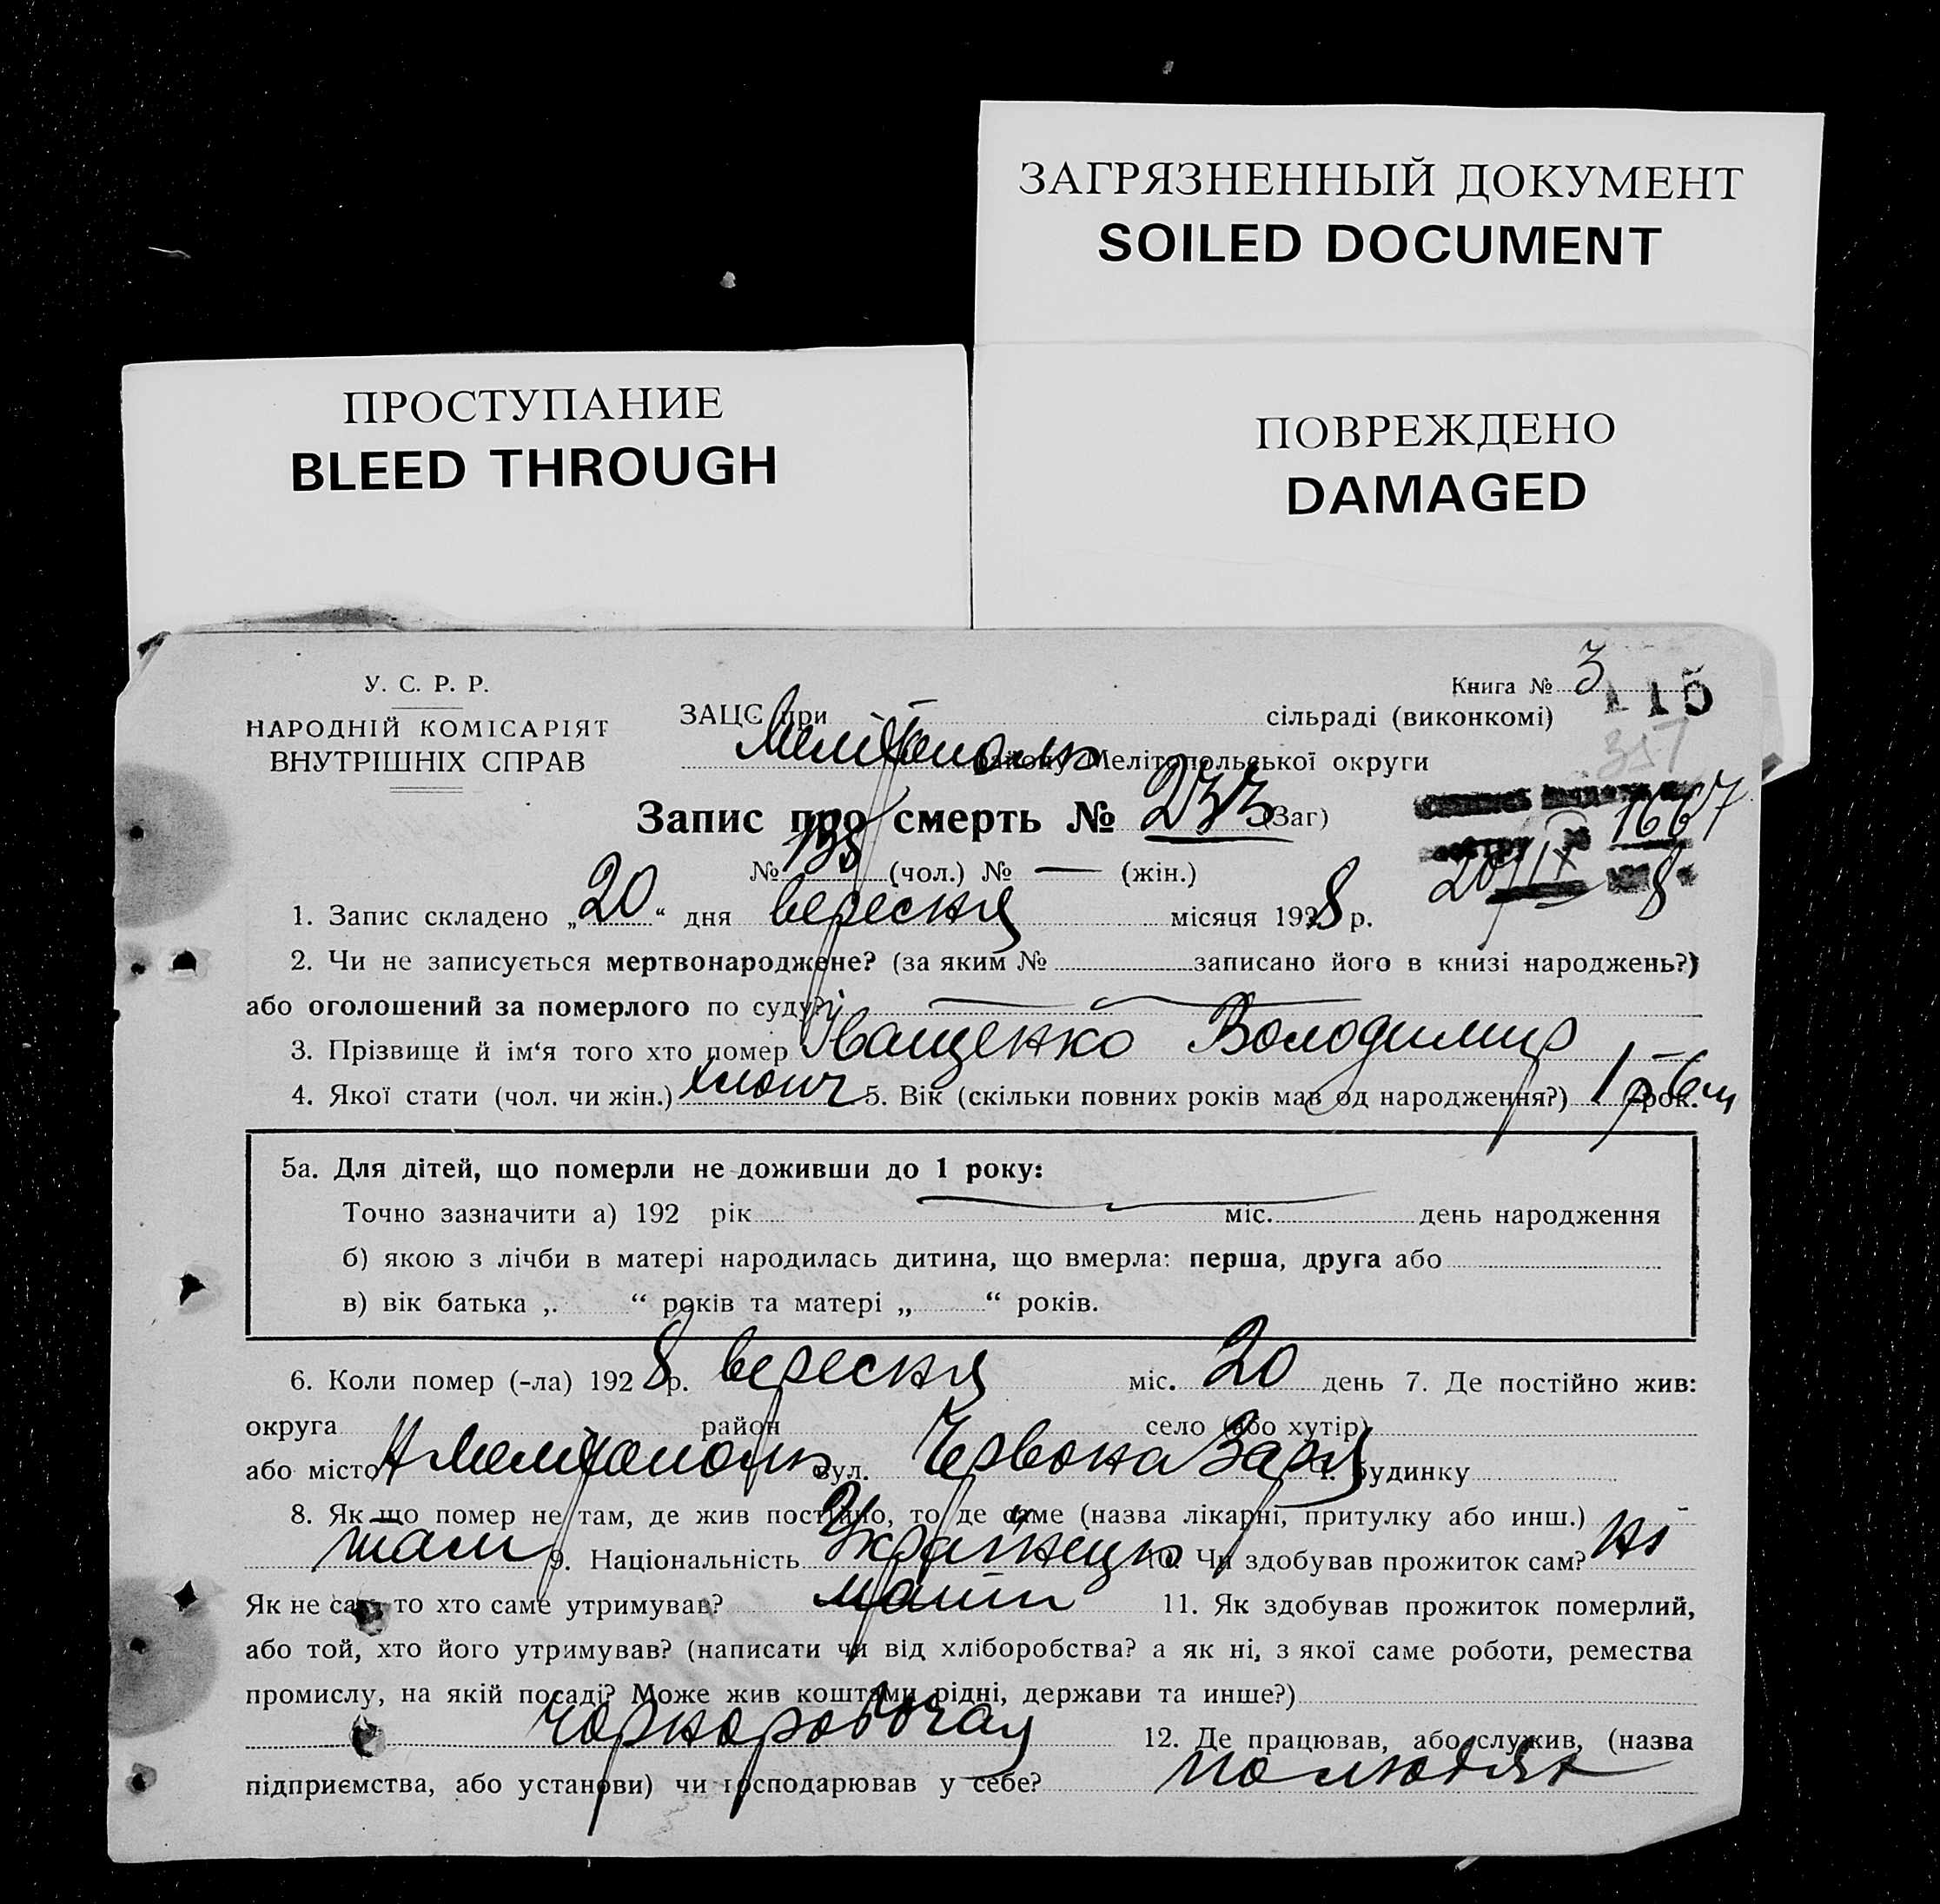 ЗАГРЯЗНЕННЫЙ ДОКУМЕНТ
SOILED DOCUMENT
ПРОСТУПАНИЕ
BLEED THROUGH
ПОВРЕЖДЕНО
DAMAGED
У. С. Р. Р.
НАРОДНІЙ КОМІСАРІЯТ
ВНУТРІШНІХ СПРАВ
Книга № 3
115
357
ЗАЦС при — сільраді (виконкомі)
Мелітополь району Мелітопольської округи
Запис про смерть № 233 (Заг)
1667
№ 138 (чол.) № — (жін.)
20/IX 8
1. Запис складено „20“ дня вересня місяця 1928 р.
2. Чи не записується мертвонароджене? (за яким № записано його в книзі народжень?)
або оголошений за померлого по суду?
3. Прізвище й ім‘я того хто помер Іващенко Володимир
4. Якої стати (чол. чи жін.) хлопч 5. Вік (скільки повних років мав од народження?) 1 р 6 м рок.
5а. Для дітей, що померли не доживши до 1 року:
Точно зазначити а) 192 рік міс. день народження
б) якою з лічби в матері народилась дитина, що вмерла: перша, друга або
в) вік батька „ “ років та матері „ “ років.
6. Коли помер (-ла) 1928 р. вересня міс. 20 день 7. Де постійно жив:
округа район село (або хутір)
або місто Мелітополь вул. Червона Заря ч. будинку
8. Як що помер не там, де жив постійно, то де саме (назва лікарні, притулку або инш.)
там 9. Національність Українець 10. Чи здобував прожиток сам? ні
Як не сам, то хто саме утримував? мати 11. Як здобував прожиток померлий,
або той, хто його утримував? (написати чи від хліборобства? а як ні, з якої саме роботи, ремества
промислу, на якій посаді? Може жив коштами рідні, держави та инше?)
чорноробочая 12. Де працював, або служив, (назва
підприємства, або установи) чи господарював у себе? по людях